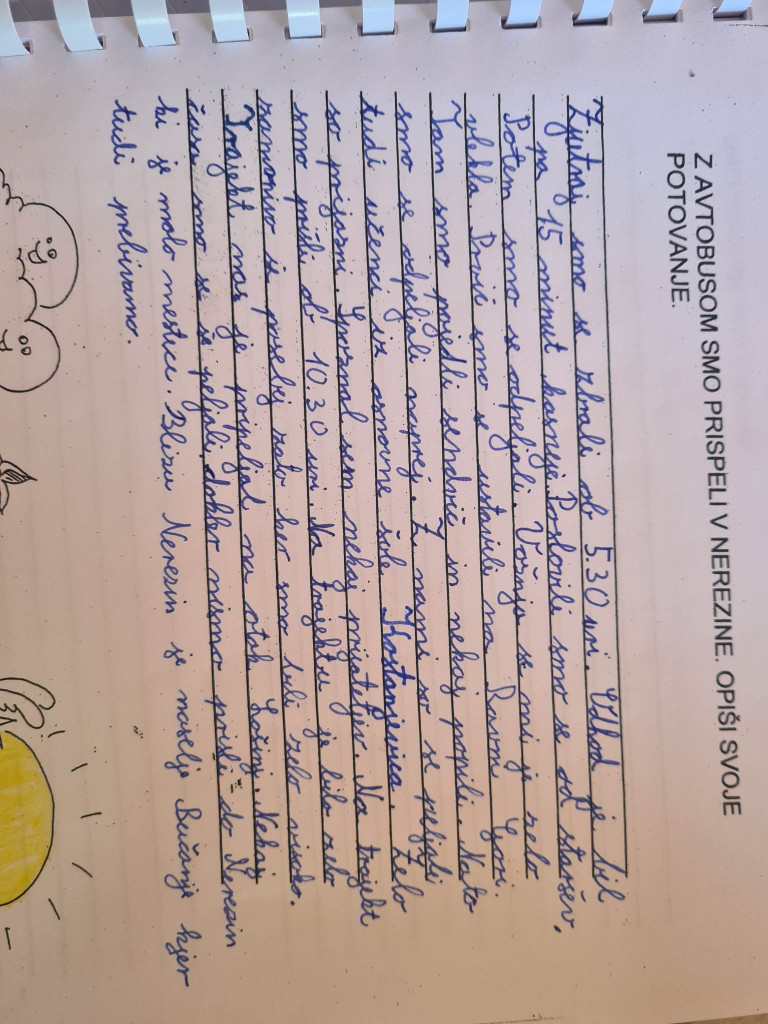 Z AVTOBUSOM SMO PRISPELI V NEREZINE. OPIŠI SVOJE
POTOVANJE.
Zjutraj smo se zbrali ob 5.30 uri. Odhod je bil
pa 15 minut kasneje. Poslovili smo se od staršev.
Potem smo se odpeljali. Vožnja se mi je zelo
vlekla. Prvič smo se ustavili na Ravni Gori.
Tam smo pojedli sendvič in nekaj popili. Nato
smo se odpeljali naprej. Z nami so se peljali
tudi učenci iz osnovne šole Kostanjevica. Zelo
so prijazni. Spoznal sem nekaj prijateljev. Na trajekt
smo prišli ob 10.30 uri. Na trajektu je bilo zelo
zanimivo in posebej zelo ker smo bili zelo visoko.
Trajekt nas je pripeljal na otok Lošinj. Nekaj
časa smo se še peljali dokler nismo prišli do Nerezin
ki je malo mestice. Blizu Nerezin je naselje Bučanje kjer
tudi prebivamo.